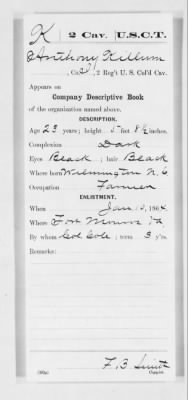 K 2 Cav. U.S.C.T.
Anthony Killum
, Co. , 2 Reg't U. S. Col'd Cav.
Appears on
Company Descriptive Book
of the organization named above.
DESCRIPTION.
Age 23 years; height 5 feet 8½ inches.
Complexion Dark
Eyes Black ; hair Black
Where born Wilmington N. C
Occupation Farmer
ENLISTMENT.
When Jan. 12, 1864.
Where Fort Monroe Va
By whom Col. Cole ; term 3 y'rs.
Remarks:
F. B. Smith
Copyist.